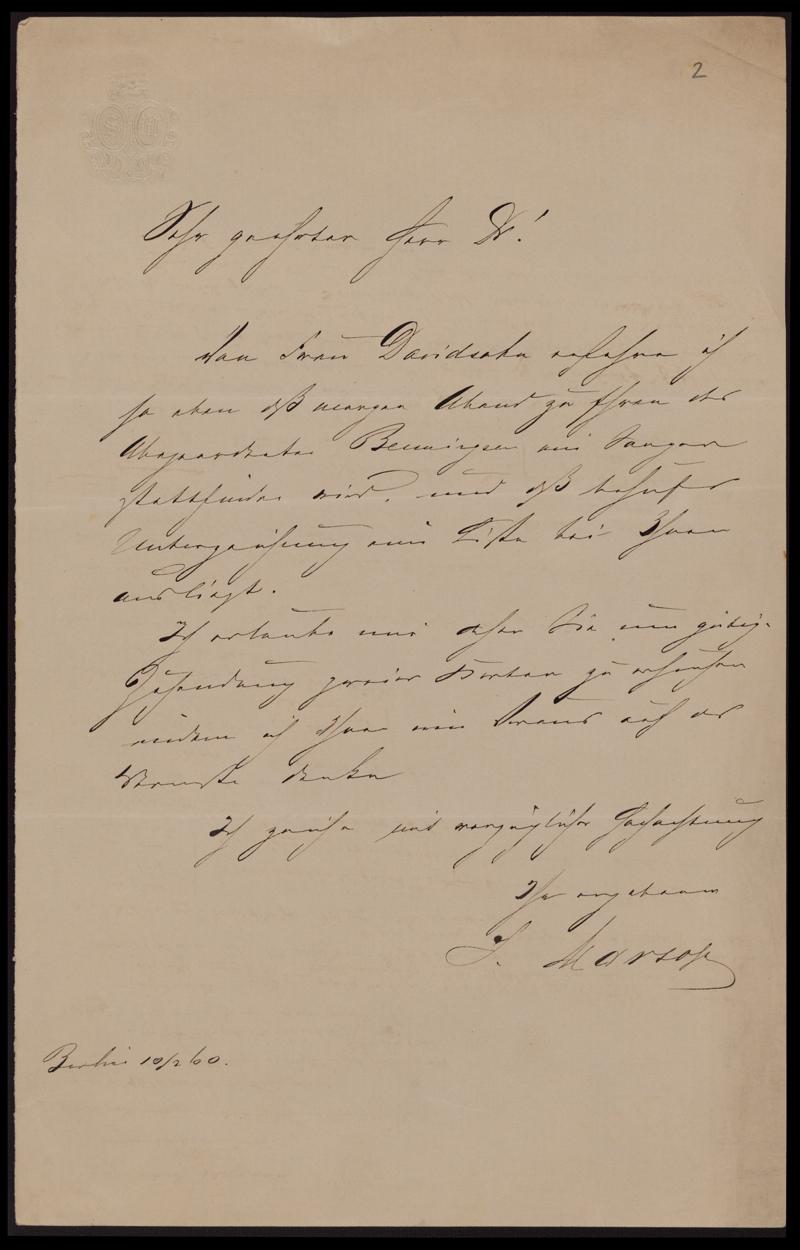 2
Sehr geehrter Herr Dr!
Von Frau Davidsohn erfahre ich
so eben dß morgen Abend zu Ehren des
Abgeordneten Bennigsen ein Souper
stattfinden wird, und dß behufs
Unterzeichnung eine Liste bei Ihnen
ausliegt.
Ich erlaube mir daher Sie um gütige
Zusendung zweier Karten zu ersuchen
indem ich Ihnen im Voraus auf das
Wärmste danke
Ich zeichne mit vorzüglicher Hochachtung
Ihr ergebener
S. Marsop
Berlin 10/2 60.